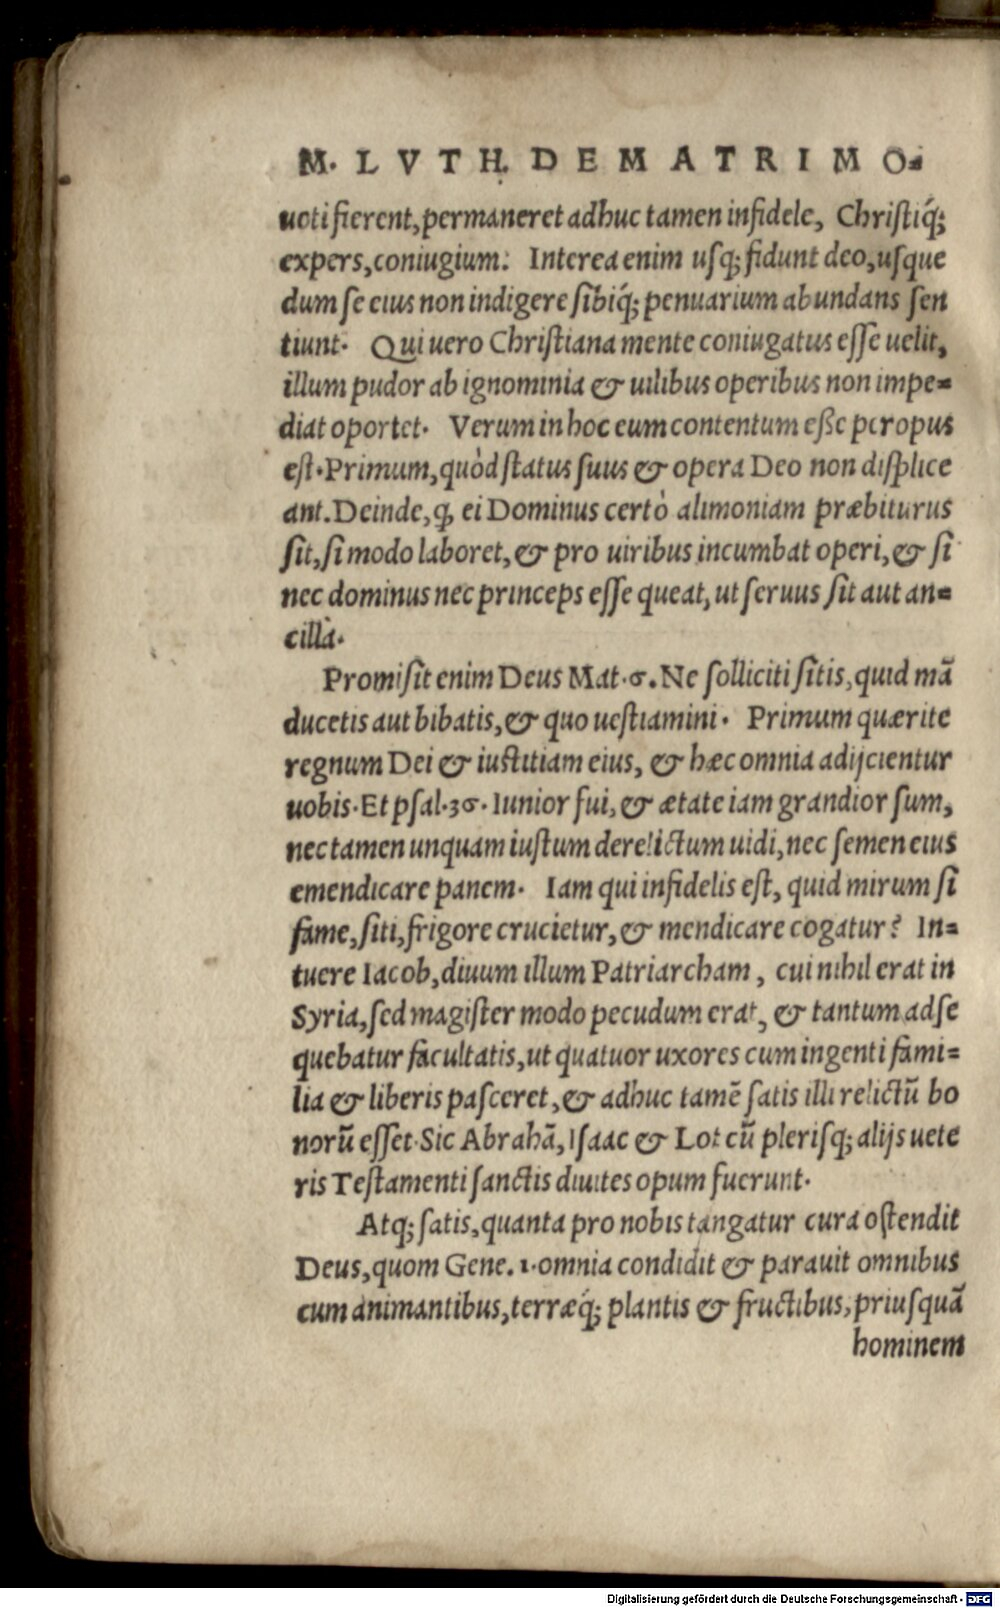 M. LVTH. DE MATRIMO-
uoti fierent, permaneret adhuc tamen infidele, Christiq́;
expers, coniugium. Interea enim usq; fidunt deo, usque
dum se eius non indigere sibiq́; penuarium abundans sen
tiunt. Qui uero Christiana mente coniugatus esse uelit,
illum pudor ab ignominia & uilibus operibus non impe-
diat oportet. Verum in hoc eum contentum eße per opus
est. Primum, quòd status suus & opera Deo non displice
ant. Deinde, ꝙ ei Dominus certò alimoniam præbiturus
sit, si modo laboret, & pro uiribus incumbat operi, & si
nec dominus nec princeps esse queat, ut seruus sit aut an-
cilla.
Promisit enim Deus Mat. 6. Ne solliciti sitis, quid mā
ducetis aut bibatis, & quo uestiamini. Primum quærite
regnum Dei & iustitiam eius, & hæc omnia adijcientur
uobis. Et psal. 36. Iunior fui, & ætate iam grandior sum,
nec tamen unquam iustum derelictum uidi, nec semen eius
emendicare panem. Iam qui infidelis est, quid mirum si
fame, siti, frigore crucietur, & mendicare cogatur? In-
tuere Iacob, diuum illum Patriarcham, cui nihil erat in
Syria, sed magister modo pecudum erat, & tantum adse
quebatur facultatis, ut quatuor uxores cum ingenti fami-
lia & liberis pasceret, & adhuc tamē satis illi relictū bo
norū esset. Sic Abrahā, Isaac & Lot cū plerisq; alijs uete
ris Testamenti sanctis diuites opum fuerunt.
Atq; satis, quanta pro nobis tangatur cura ostendit
Deus, quom Gene. 1. omnia condidit & parauit omnibus
cum animantibus, terræq́; plantis & fructibus, priusquā
hominem
Digitalisierung gefördert durch die Deutsche Forschungsgemeinschaft - DFG